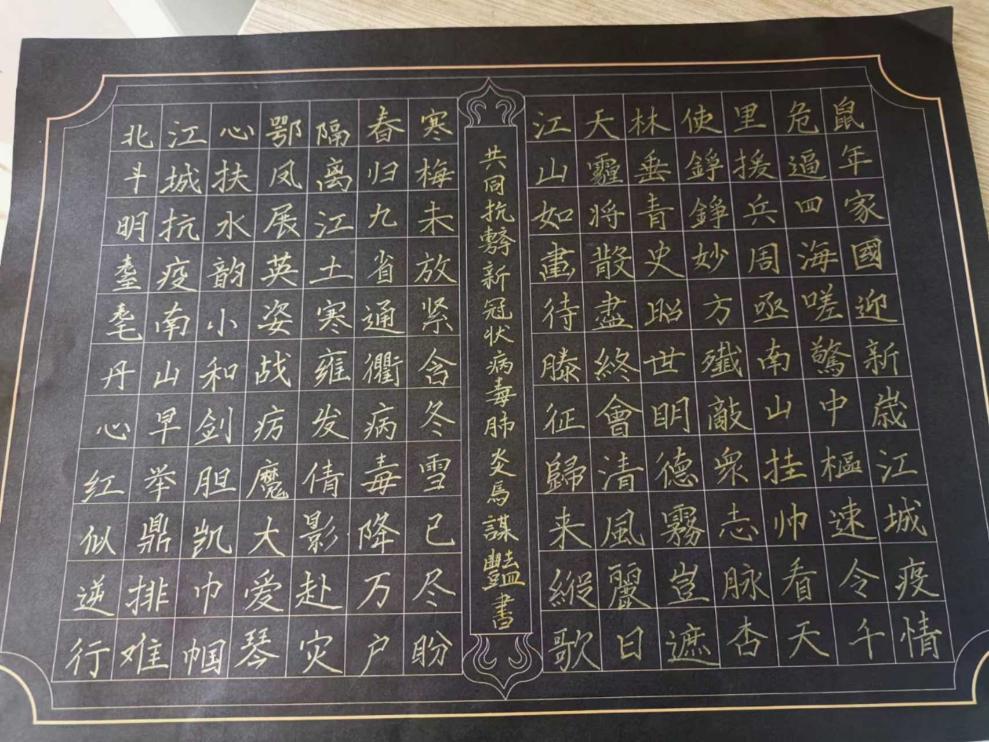 鼠年家國迎新歲江城疫情
危逼四海嗟驚中樞速令千
里援兵周亟南山挂帅看天
使錚錚妙方殲敵衆志脉杏
林垂青史昭世明德霧豈遮
天霾将散盡終會清風麗日
江山如畫待滕征歸来縱歌
共同抗擊新冠状病毒肺炎馬謀豔書
寒梅未放紧含冬雪已尽盼
春归九省通衢病毒降万户
隔离江土寒雍发倩影赴灾
鄂凤展英姿战疠魔大爱琴
心扶水韵小和剑胆凯巾帼
江城抗疫南山早举鼎排难
北斗明耋耄丹心红似逆行